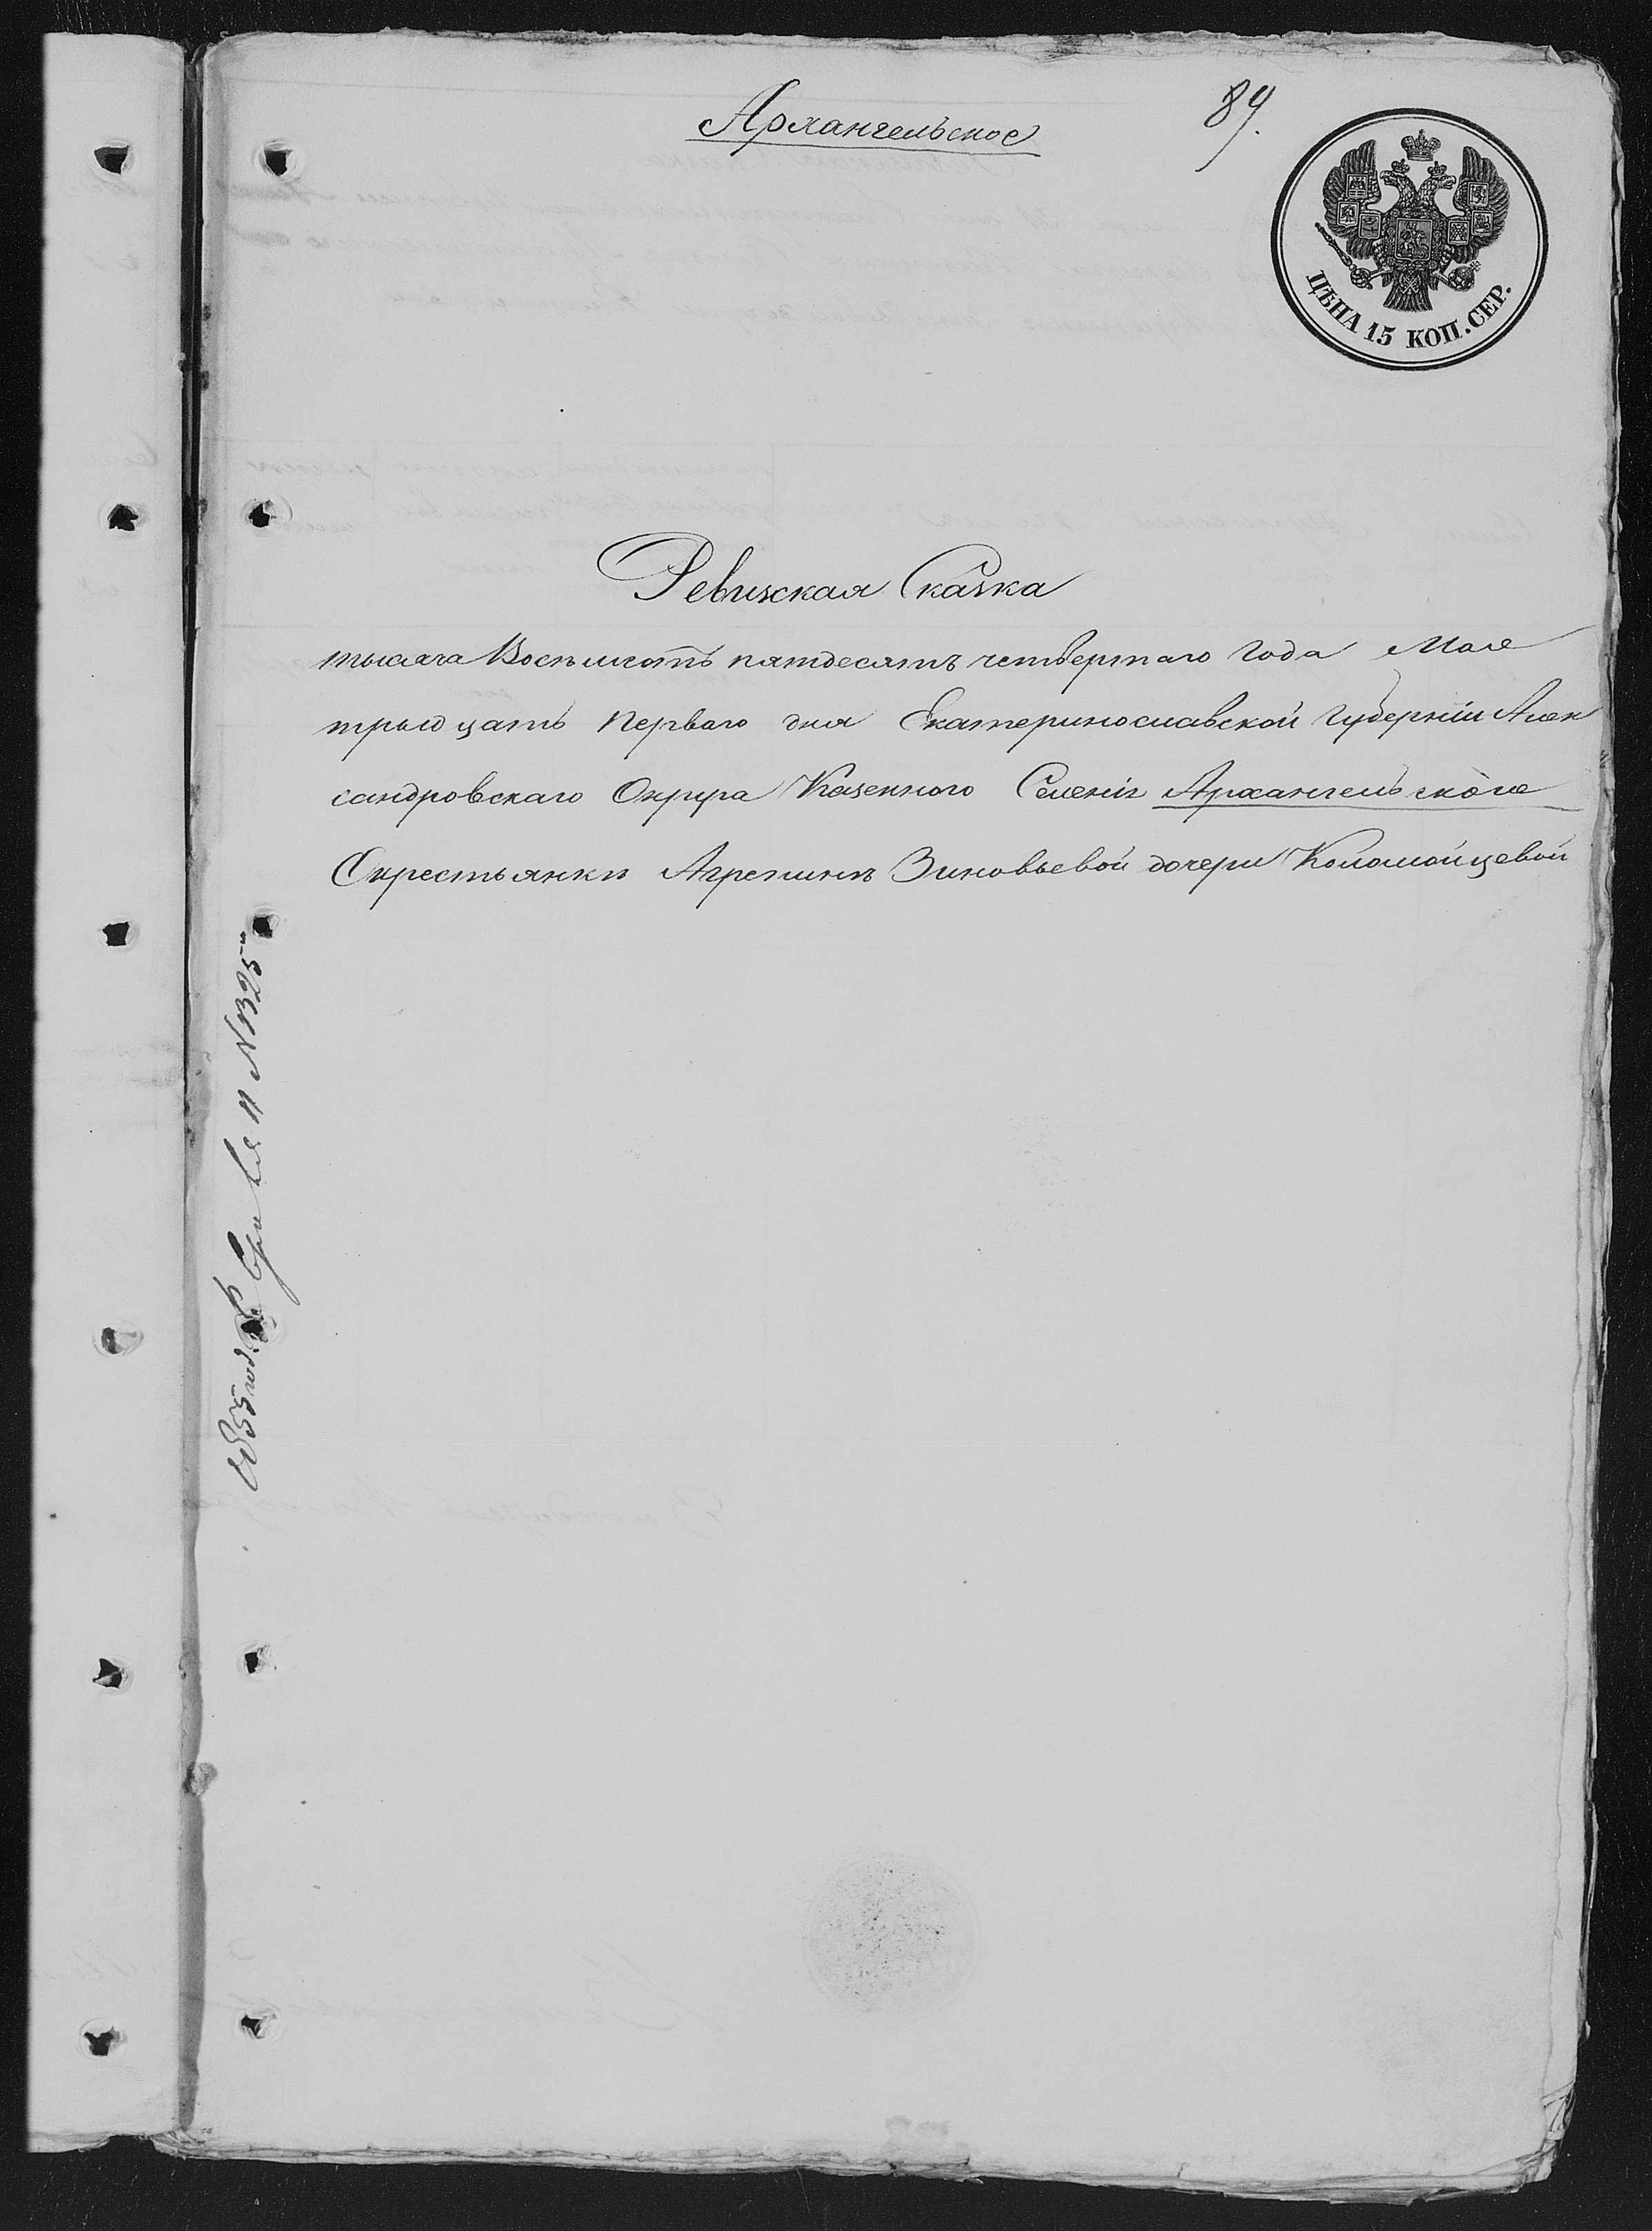 Архангельское
89.
ЦѢНА 15 КОП. СЕР.
Ревизская Сказка
тысяча Восемьсотъ пятдесятъ четвертаго Года Мая
тридцать Перваго дня Екатеринославской Губерніи Алек
сандровскаго Округа Казенного Селенія Архангельского
Окрестьянки Агрепинъ Зиновьевой дочери Коломойцевой
1855 года № 1325